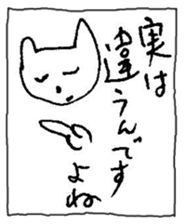 実は
違うんです
よね